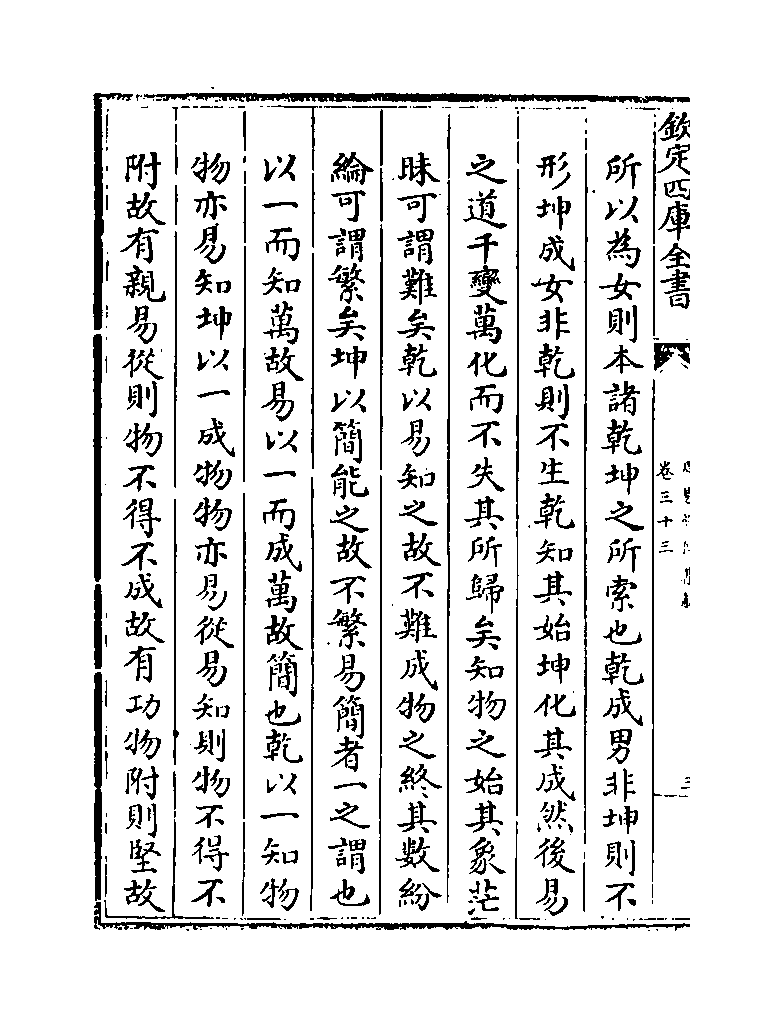 欽定四庫全書
卷三十三
所以為女則本諸乾坤之所索也乾成男非坤則不
形坤成女非乾則不生乾知其始坤化其成然後易
之道千變萬化而不失其所歸矣知物之始其象茫
昧可謂難矣乾以易知之故不難成物之終其數紛
綸可謂繁矣坤以簡能之故不繁易簡者一之謂也
以一而知萬故易以一而成萬故簡也乾以一知物
物亦易知坤以一成物物亦易從易知則物不得不
附故有親易從則物不得不成故有功物附則堅故